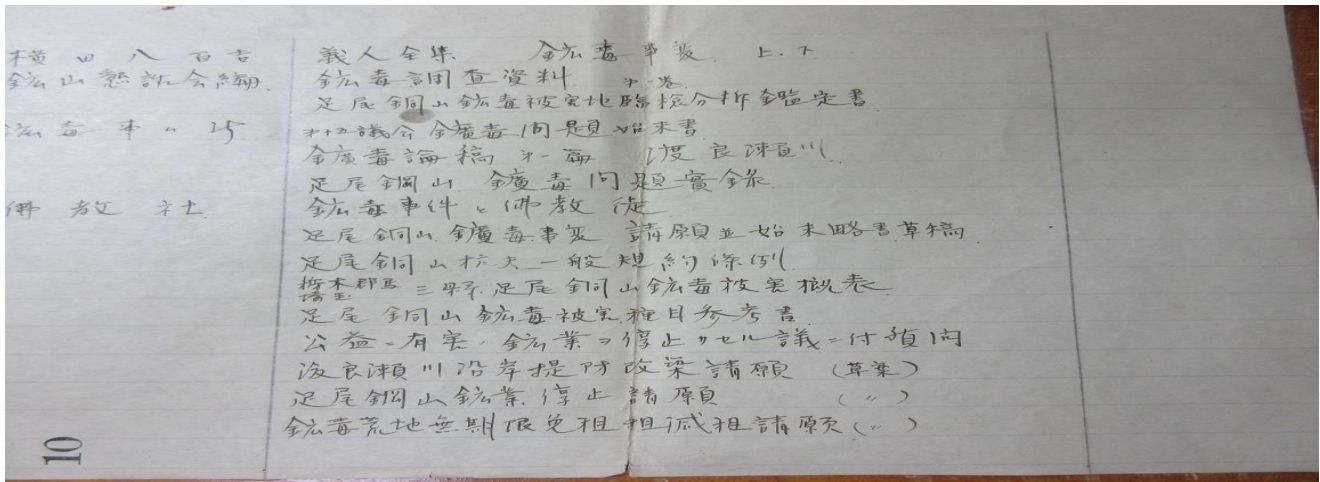 横田八百吉 義人全集 鉱毒事変 上.下
鉱山懇話会編 鉱毒調查資料 第一巻
足尾銅山鉱毒被害地臨検分析鑑定書
鉱毒事ム所 第十五議会鑛毒問題始末書
鑛毒論稿 第一編 渡良瀬川
足尾銅山 鑛毒問題實録
佛教社 鉱毒事件と佛教徒
足尾銅山鑛毒事変 請願並始末略書草稿
足尾銅山坑夫一般規約條例
栃木群馬埼玉 三県足尾銅山鉱毒被害概表
足尾銅山鉱毒被害種目参考書
公益ニ有害ノ鉱業ヲ停止セル議ニ付質問
渡良瀬川沿岸提防改築請願 (草案)
足尾銅山鉱業停止請願 (〃)
鉱毒荒地無期限免租 減租請願(〃)
10